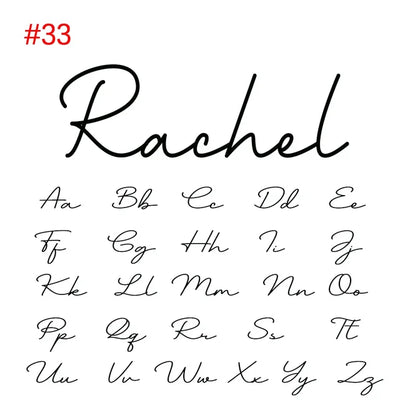 #33
Rachel
Aa Bb Cc Dd Ee
Ff Gg Hh Ii Jj
Kk Ll Mm Nn Oo
Pp Qq Rr Ss Tt
Uu Vv Ww Xx Yy Zz